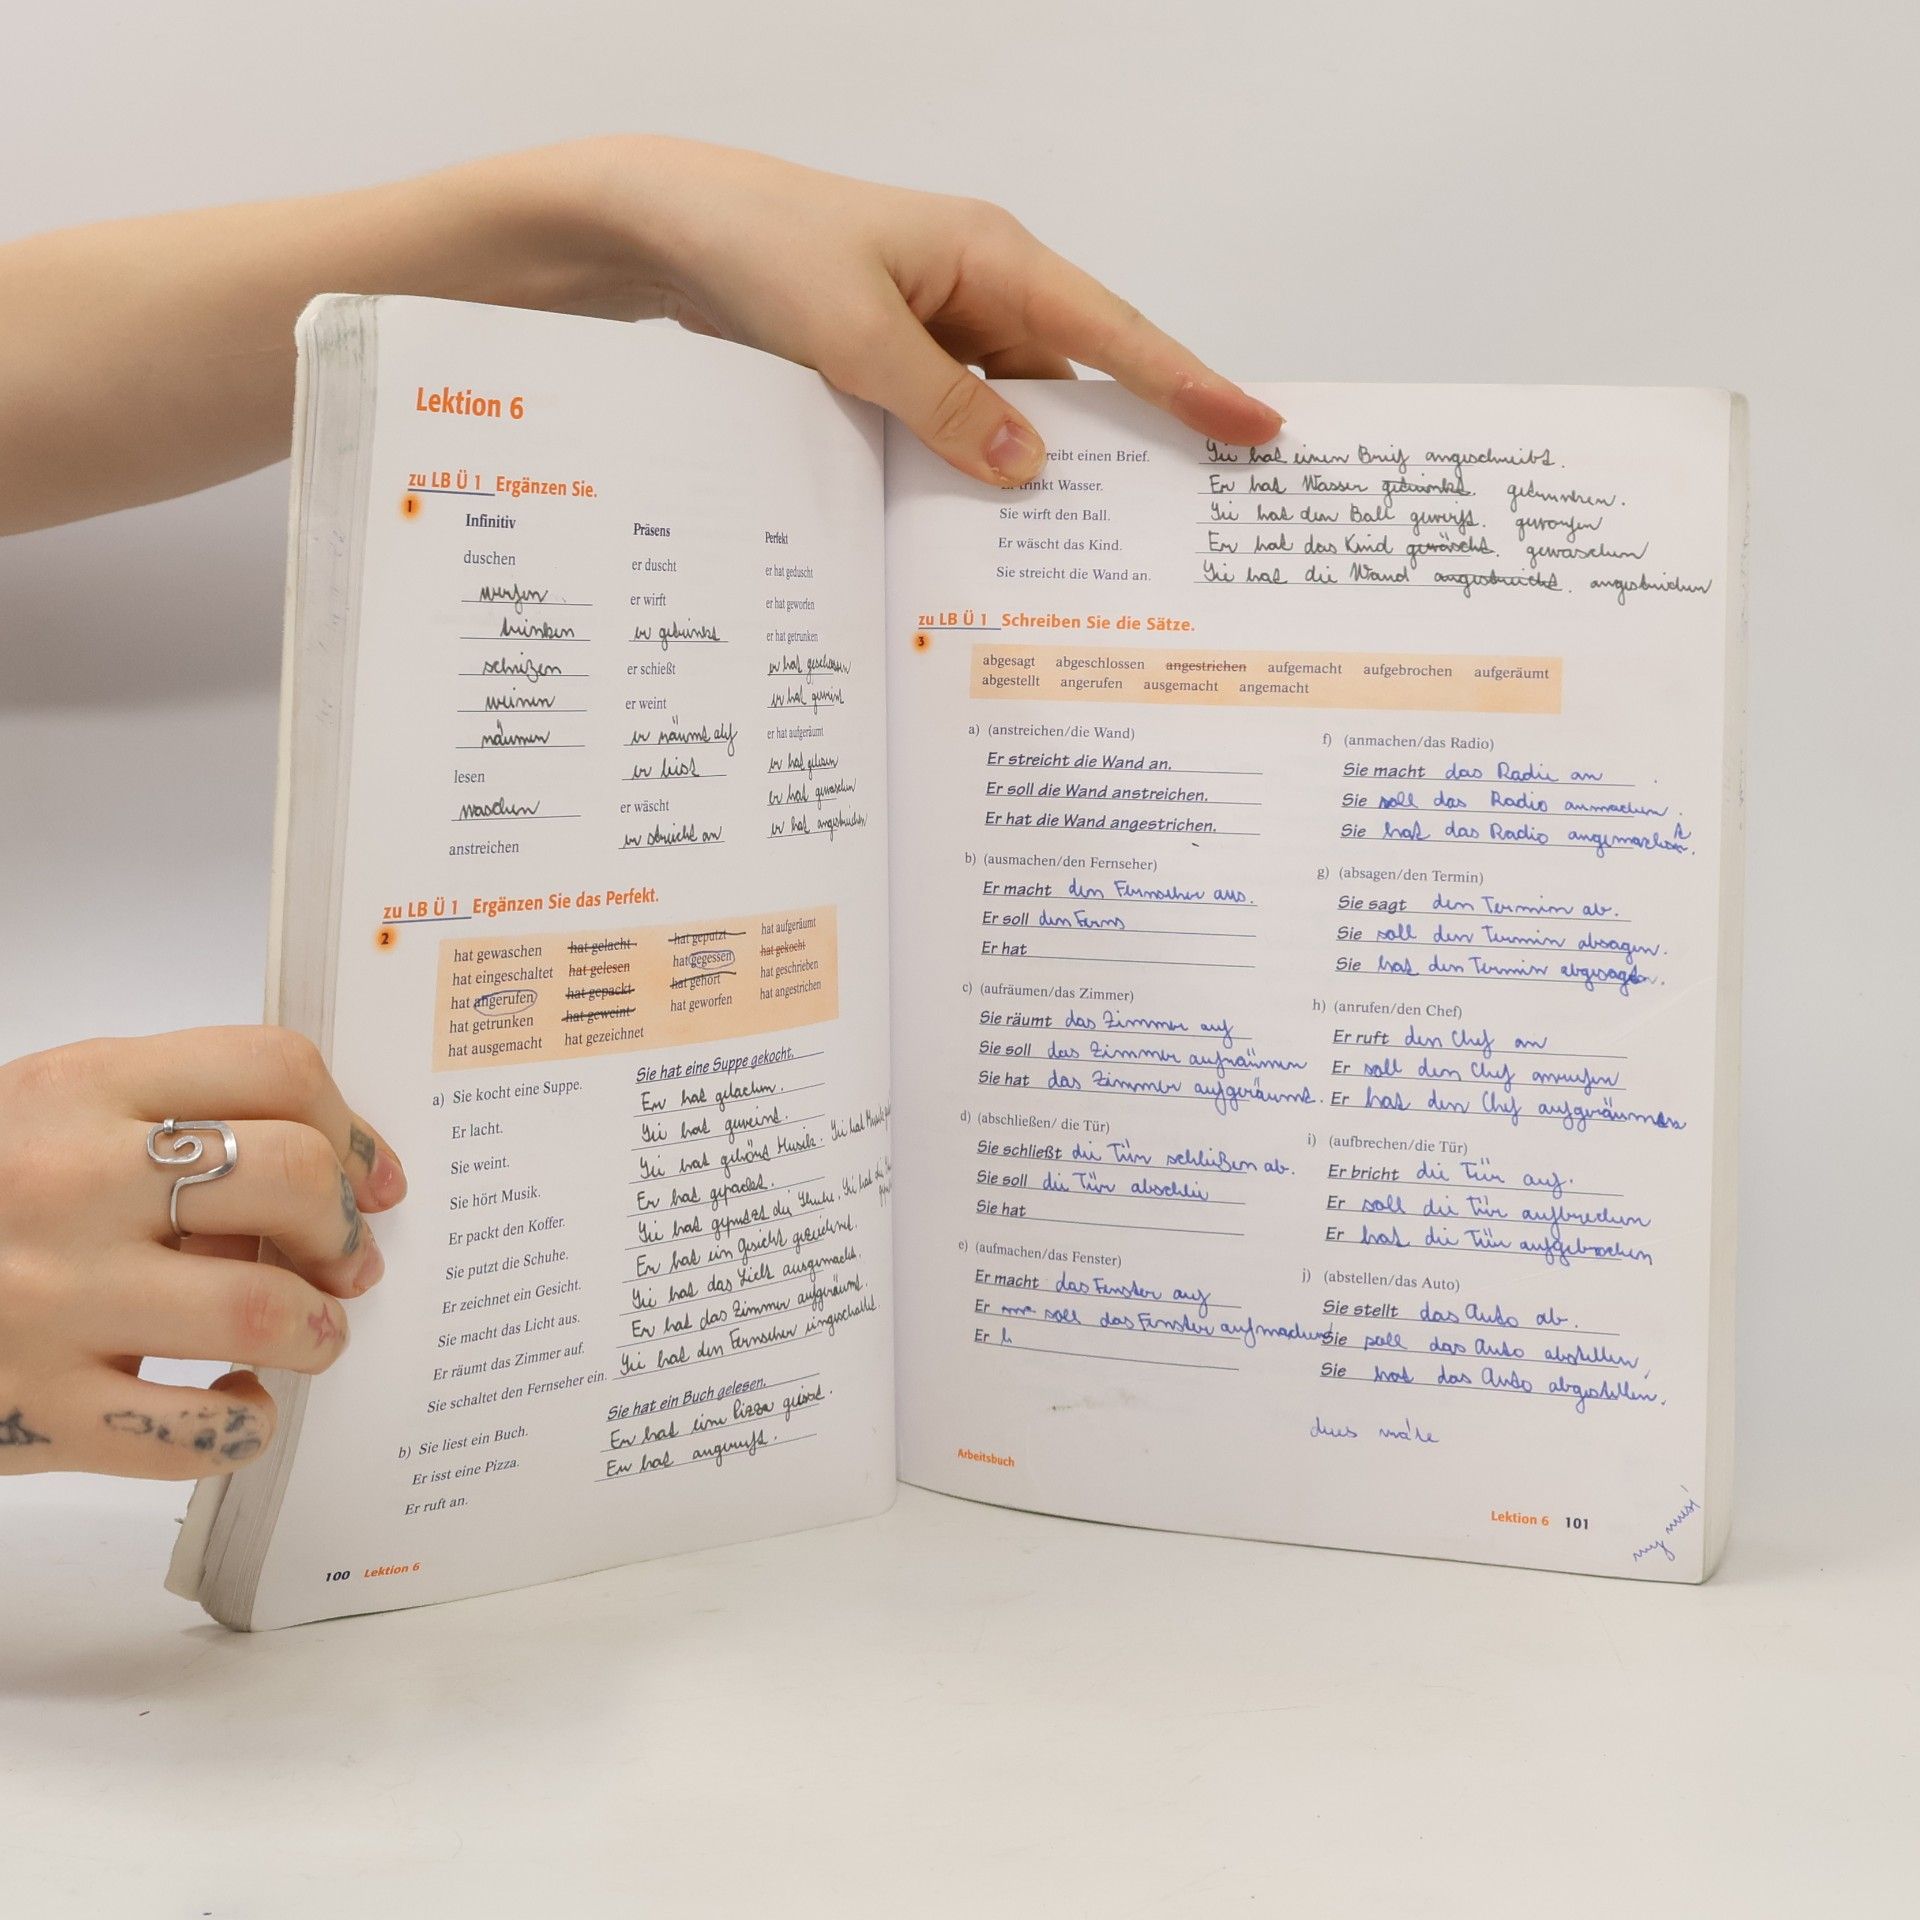 Lektion 6
zu LB Ü 1 Ergänzen Sie.
1
Infinitiv Präsens Perfekt
duschen er duscht er hat geduscht
werfen er wirft er hat geworfen
trinken er getrinkt er hat getrunken
schizen er schießt er hat geschossen
weinen er weint er hat geweint
räumen er räumt auf er hat aufgeräumt
lesen er list er hat gelesen
waschen er wäscht er hat gewaschen
anstreichen er streicht an er hat angestrichen
zu LB Ü 1 Ergänzen Sie das Perfekt.
2
hat gewaschen hat gelacht hat geputzt hat aufgeräumt
hat eingeschaltet hat gelesen hat gegessen hat gekocht
hat angerufen hat gepackt hat gehört hat geschrieben
hat getrunken hat geweint hat geworfen hat angestrichen
hat ausgemacht hat gezeichnet
a) Sie kocht eine Suppe. Sie hat eine Suppe gekocht.
Er lacht. Er hat gelachen.
Sie weint. Sie hat geweint.
Sie hört Musik. Sie hat gehört Musik. Sie hat Musik
Er packt den Koffer. Er hat gepackt.
Sie putzt die Schuhe. Sie hat geputzt die Schuhe. Sie hat die
Er zeichnet ein Gesicht. Er hat ein Gesicht gezeichnet.
Sie macht das Licht aus. Sie hat das Licht ausgemacht.
Er räumt das Zimmer auf. Er hat das Zimmer aufgeräumt.
Sie schaltet den Fernseher ein. Sie hat den Fernseher eingeschaltet.
b) Sie liest ein Buch. Sie hat ein Buch gelesen.
Er isst eine Pizza. Er hat eine Pizza geisst.
Er ruft an. Er hat angeruft.
100 Lektion 6
reibt einen Brief. Sie hat einen Brief angeschreibt.
trinkt Wasser. Er hat Wasser getrinkt. getrunken.
Sie wirft den Ball. Sie hat den Ball gewirft. geworfen
Er wäscht das Kind. Er hat das Kind gewäscht. gewaschen
Sie streicht die Wand an. Sie hat die Wand angestreicht. angestrichen
zu LB Ü 1 Schreiben Sie die Sätze.
3
abgesagt abgeschlossen angestrichen aufgemacht aufgebrochen aufgeräumt
abgestellt angerufen ausgemacht angemacht
a) (anstreichen/die Wand)
Er streicht die Wand an.
Er soll die Wand anstreichen.
Er hat die Wand angestrichen.
b) (ausmachen/den Fernseher)
Er macht den Fernseher aus.
Er soll den Ferns
Er hat
c) (aufräumen/das Zimmer)
Sie räumt das Zimmer auf
Sie soll das Zimmer aufräumen
Sie hat das Zimmer aufgeräumt.
d) (abschließen/ die Tür)
Sie schließt die Tür schließen ab.
Sie soll die Tür abschlie
Sie hat
e) (aufmachen/das Fenster)
Er macht das Fenster auf
Er soll das Fenster aufmachen
Er h
f) (anmachen/das Radio)
Sie macht das Radio an
Sie soll das Radio anmachen.
Sie hat das Radio
g) (absagen/den Termin)
Sie sagt den Termin ab.
Sie soll den Termin absagen.
Sie hat den Termin
h) (anrufen/den Chef)
Er ruft den Chef an
Er soll den Chef anrufen
Er hat den Chef
i) (aufbrechen/die Tür)
Er bricht die Tür auf.
Er soll die Tür aufbrechen
Er hat die Tür aufgebrochen
j) (abstellen/das Auto)
Sie stellt das Auto ab.
Sie soll das Auto abstellen,
Sie hat das Auto abgestellen.
Arbeitsbuch
Lektion 6 101